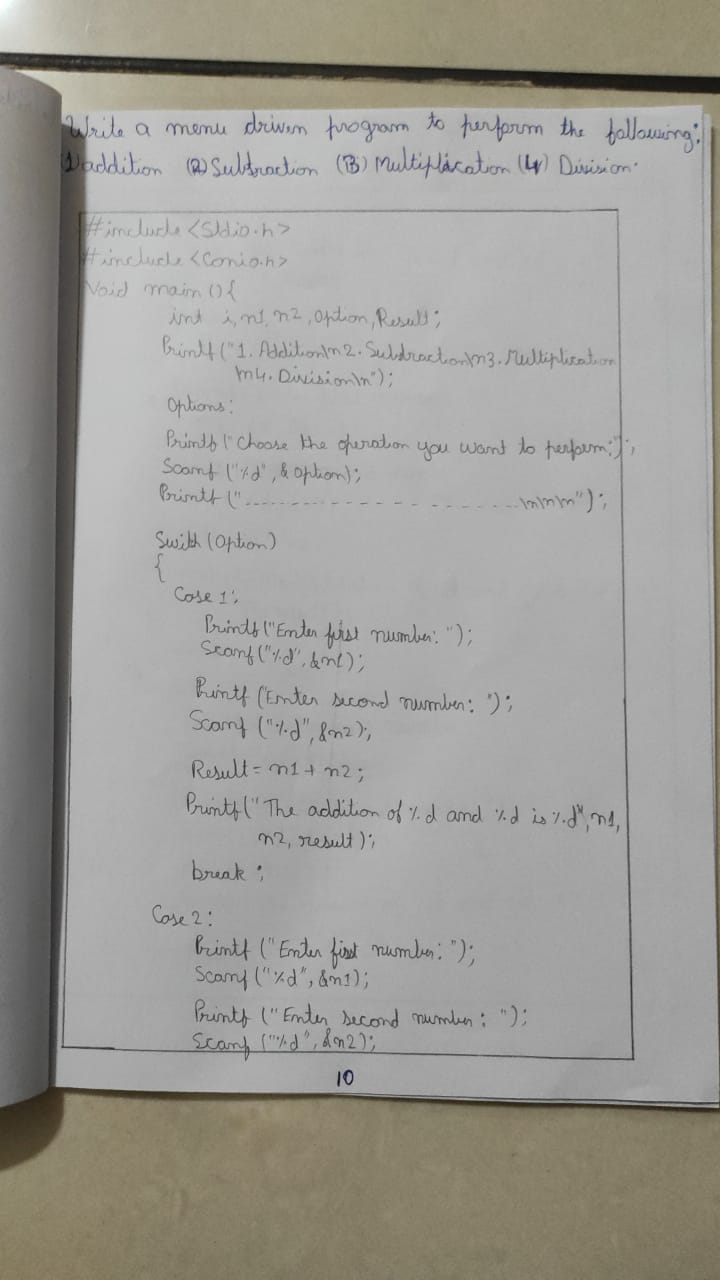 Write a menu driven program to perform the following:
(1) addition (2) Subtraction (3) Multiplication (4) Division.
#include <Stdio.h>
#include <Conio.h>
Void main () {
int i, n1, n2, Option, Result;
Printf ("1. Addition\n 2. Subtraction\n3. Multiplication
\n4. Division\n");
Options:
Printf ("Choose the operation you want to perform:");
Scanf ("%d", & Option);
Printf ("--------------------\n\n\n");
Swith (Option)
{
Case 1:
Printf ("Enter first number: ");
Scanf ("%d", &n1);
Printf ("Enter second number: ");
Scanf ("%d", &n2);
Result = n1 + n2;
Printf (" The addition of %d and %d is %d", n1,
n2, result);
break ;
Case 2:
Printf ("Enter first number: ");
Scanf ("%d", &n1);
Printf ("Enter second number : ");
Scanf ("%d", &n2);
10